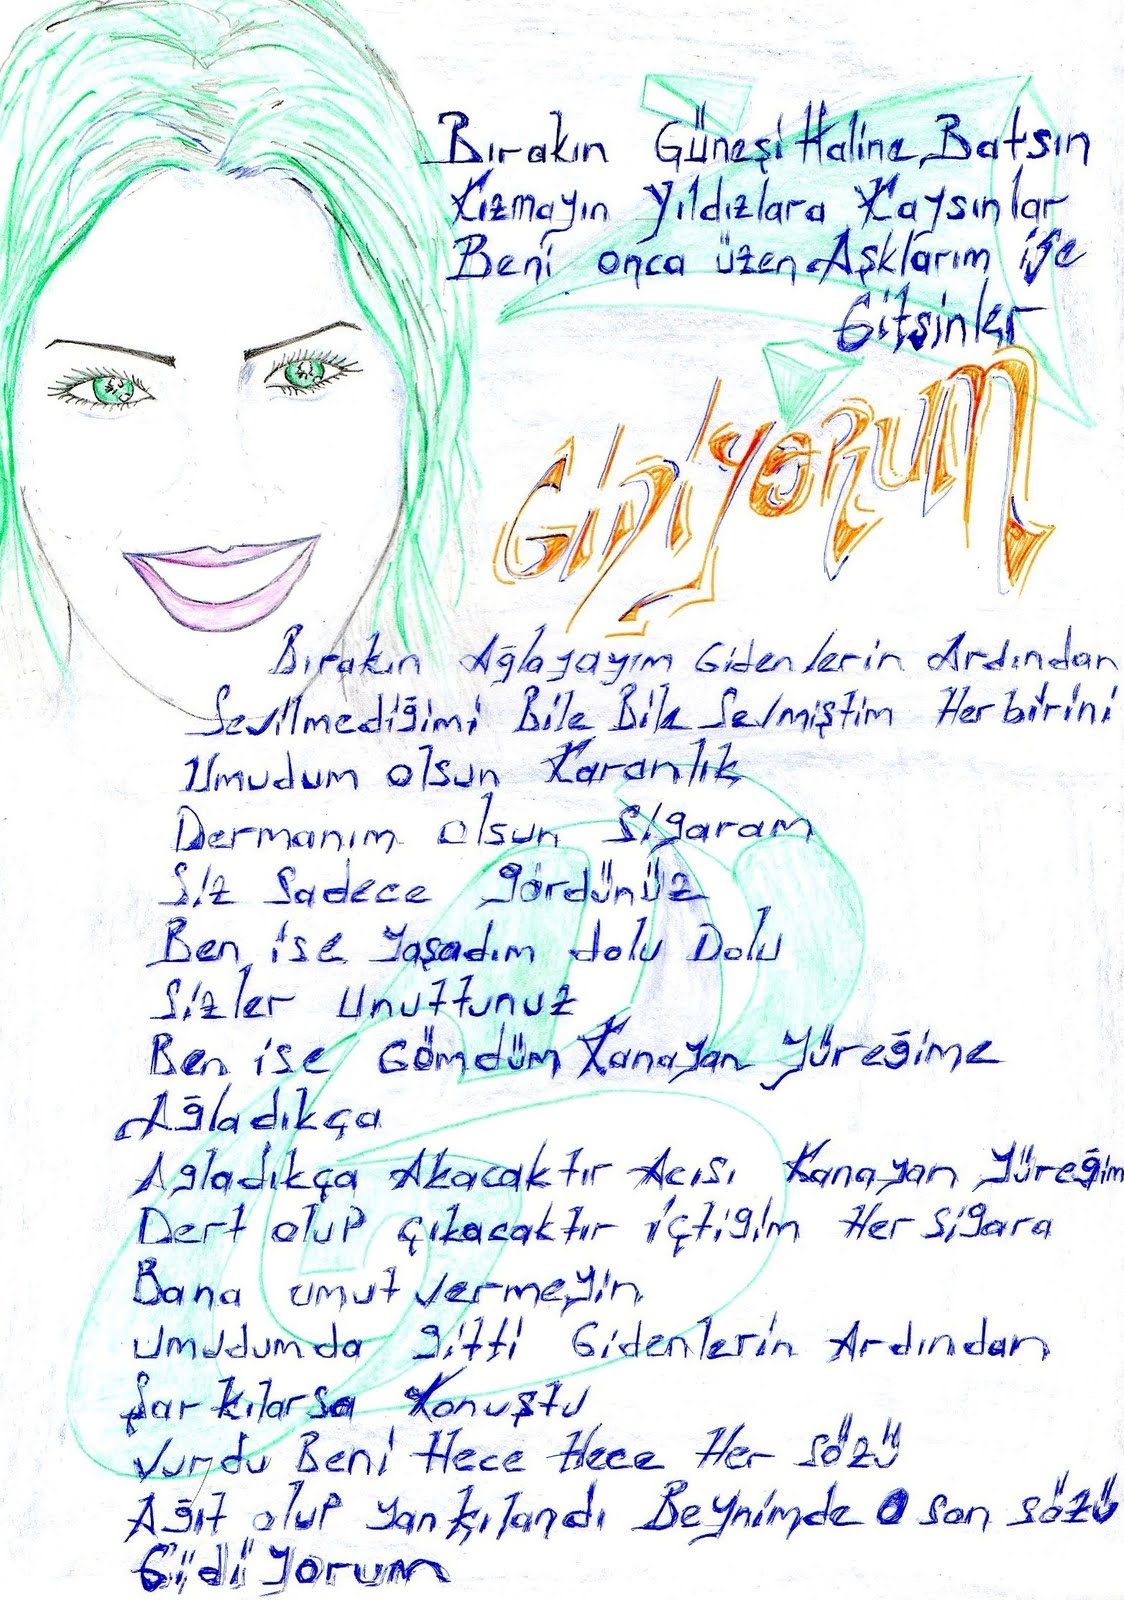 Bırakın Güneşi Haline Batsın
Kızmayın Yıldızlara Kaysınlar
Beni onca üzen Aşklarım ise
Gitsinler
GİDİYORUM
Bırakın Ağlayayım Gidenlerin Ardından
Sevilmediğimi Bile Bile Sevmiştim Her birini
Umudum olsun Karanlık
Dermanım olsun Sigaram
Siz Sadece gördünüz
Ben ise yaşadım dolu Dolu
Sizler Unuttunuz
Ben ise Gömdüm Kanayan Yüreğime
Ağladıkça
Agladıkça Akacaktır Acısı Kanayan Yüreğim
Dert olup çıkacaktır içtiğim Her sigara
Bana umut vermeyin
Umudumda gitti Gidenlerin Ardından
Şarkılarsa Konuştu
Vurdu Beni Hece Hece Her sözü
Ağıt olup yankılandı Beynimde O son sözü
Gidiyorum